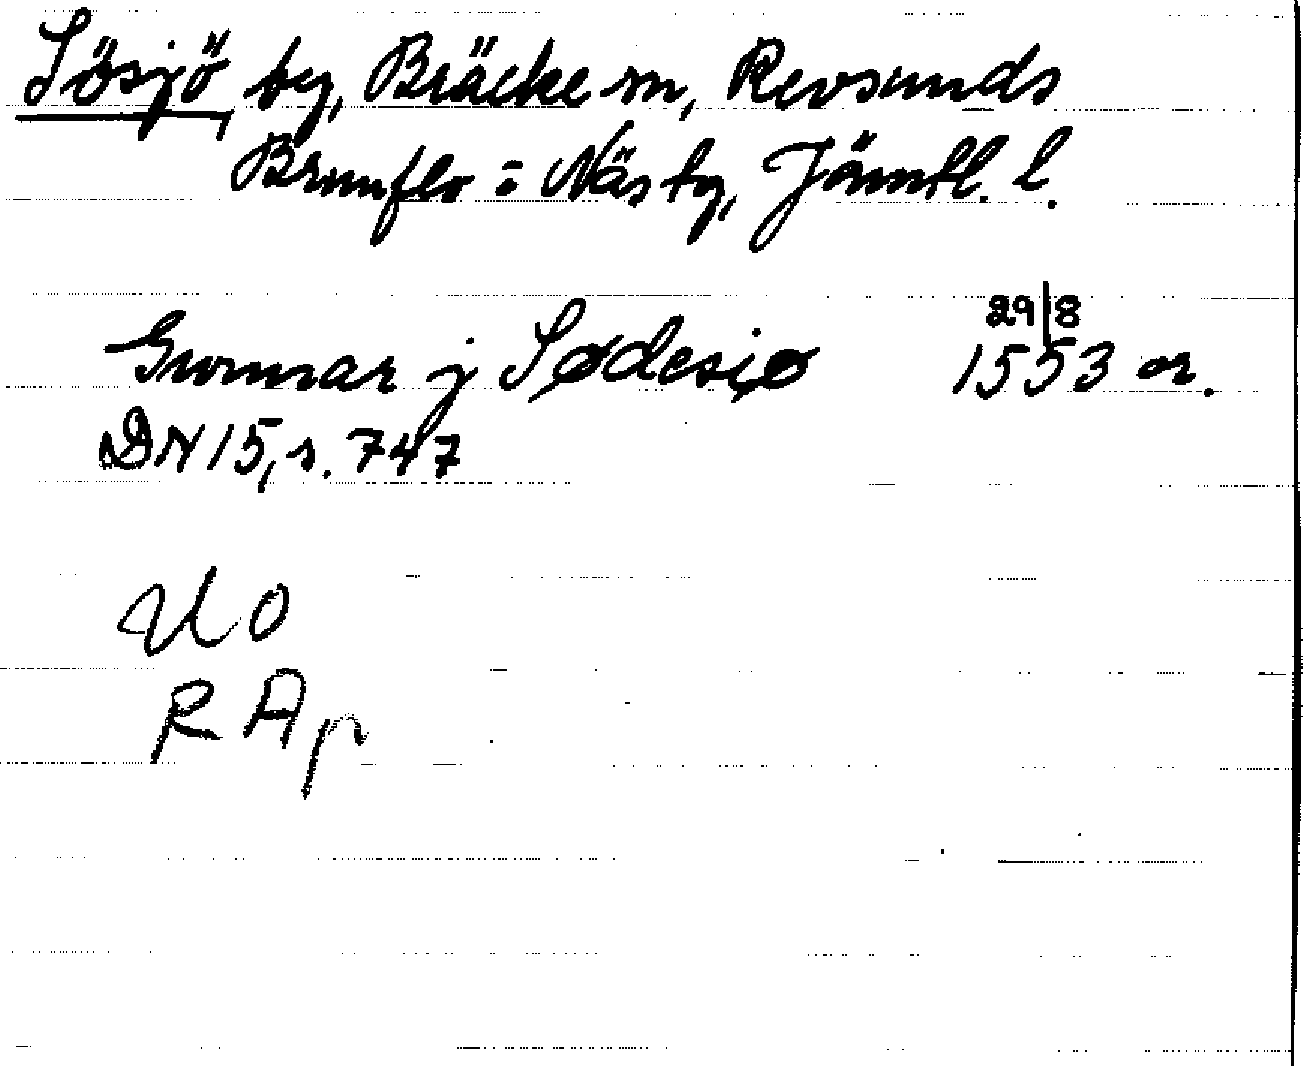 Sösjö, by, Bräcke sn, Revsunds
Brunflo = Näs tg, Jämtl. l.
Gunnar j Sødesiø 29/8 1553 or.
DN 15, s. 747
UO
RAp